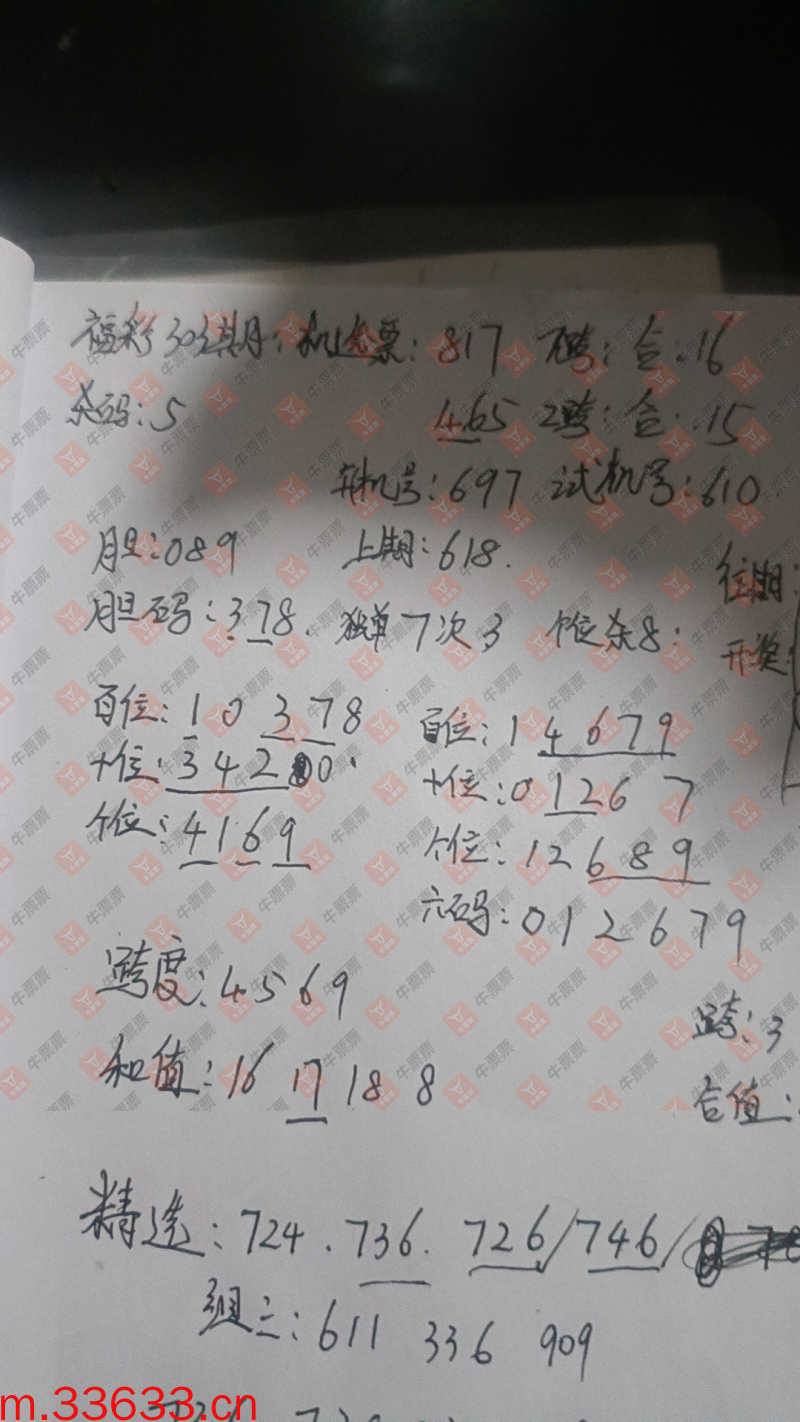 福彩303期: 机选票: 817 7跨: 合: 16
杀码: 5 465 2跨: 合: 15
开机号: 697 试机号: 610.
胆: 089 上期: 618.
往期:
胆码: 378. 独单7次3 个位杀8:
开奖:
百位: 10378
十位: 342 0
个位: 4169
百位: 14679
十位: 01267
个位: 12689
六码: 012679
跨度: 4569
跨: 3
和值: 16 17 18 8
合值:
精选: 724. 736. 726/746/
组三: 611 336 909
m.33633.cn
牛票票